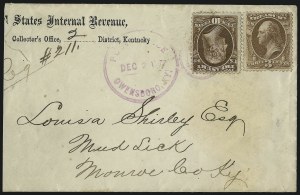 States Internal Revenue,
Collector's Office, 2 District, Kentucky
# 211.
DEC 2
OWENSBORO, KY.
TREASURY
3
10
Louisa Shirley Esq
Mud Lick
Monroe Co Ky.